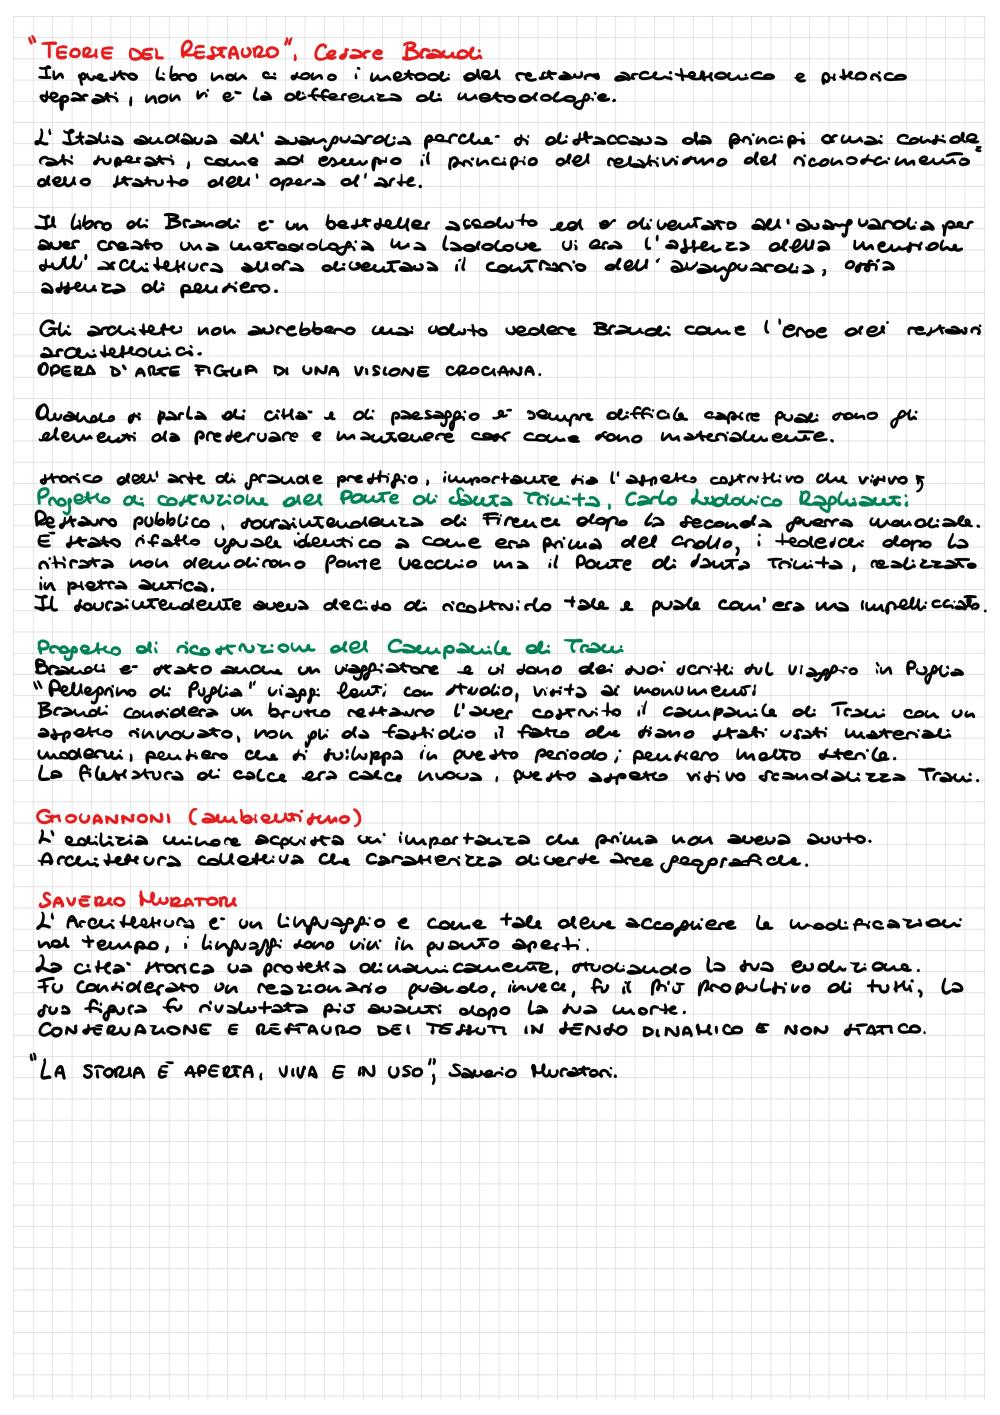 "TEORIE DEL RESTAURO", Cesare Brandi
In questo libro non ci sono i metodi del restauro architettonico e pittorico
separati, non vi è la differenza di metodologie.
L'Italia andava all'avanguardia perché si distaccava da principi ormai conside
rati superati, come ad esempio il principio del relativismo del riconoscimento
dello statuto dell'opera d'arte.
Il libro di Brandi è un bestseller assoluto ed è diventato all'avanguardia per
aver creato una metodologia ma laddove vi era l'assenza della menzione
sull'architettura allora diventava il contrario dell'avanguardia, ossia
assenza di pensiero.
Gli architetti non avrebbero mai voluto vedere Brandi come l'eroe dei restauri
architettonici.
OPERA D'ARTE FIGLIA DI UNA VISIONE CROCIANA.
Quando si parla di città e di paesaggio è sempre difficile capire quali sono gli
elementi da preservare e mantenere così come sono materialmente.
storico dell'arte di grande prestigio, importante sia l'aspetto costruttivo che visivo
Progetto di costruzione del Ponte di Santa Trinita, Carlo Ludovico Raghianti:
Restauro pubblico, sovraintendenza di Firenze dopo la seconda guerra mondiale.
È stato rifatto uguale identico a come era prima del crollo, i tedeschi dopo la
ritirata non demolirono Ponte Vecchio ma il Ponte di Santa Trinita, realizzato
in pietra antica.
Il sovraintendente aveva deciso di ricostruirlo tale e quale com'era ma impellicciato.
Progetto di ricostruzione del Campanile di Trani
Brandi è stato anche un viaggiatore e vi sono dei suoi scritti sul viaggio in Puglia
"Pellegrino di Puglia" viaggi lenti con studio, visita ai monumenti
Brandi considera un brutto restauro l'aver costruito il campanile di Trani con un
aspetto rinnovato, non gli da fastidio il fatto che siano stati usati materiali
moderni, pensiero che si sviluppa in questo periodo; pensiero molto sterile.
La filettatura di calce era calce nuova, questo aspetto visivo scandalizza Trani.
GIOVANNONI (ambientismo)
L'edilizia minore acquista un'importanza che prima non aveva avuto.
Architettura collettiva che caratterizza diverse aree geografiche.
SAVERIO MURATORI
L'Architettura è un linguaggio e come tale deve accogliere le modificazioni
nel tempo, i linguaggi sono vivi in quanto aperti.
La città storica va protetta dinamicamente, studiando la sua evoluzione.
Fu considerato un reazionario quando, invece, fu il più propulsivo di tutti, la
sua figura fu rivalutata più avanti dopo la sua morte.
CONSERVAZIONE E RESTAURO DEI TESSUTI IN SENSO DINAMICO E NON STATICO.
"LA STORIA È APERTA, VIVA E IN USO", Saverio Muratori.